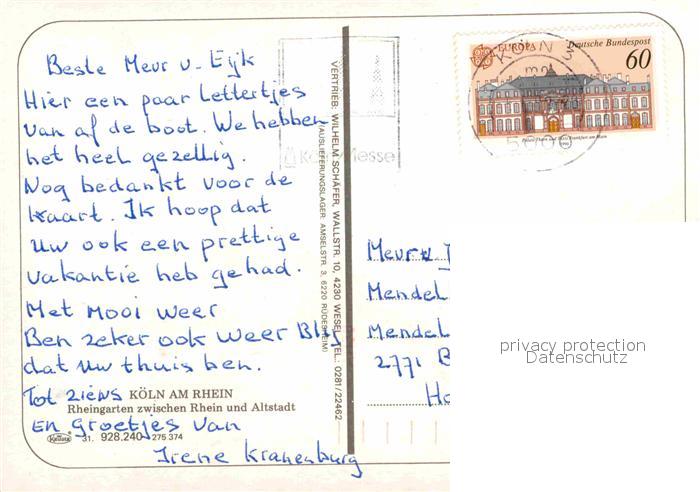 Beste Meur v. Eijk
Hier een paar Lettertjes
van af de boot. We hebben
het heel gezellig.
Nog bedankt voor de
kaart. Ik hoop dat
uw ook een prettige
vakantie heb gehad.
Met mooi weer
Ben zeker ook weer Blij
dat uw thuis ben.
Tot ziens
KÖLN AM RHEIN
Rheingarten zwischen Rhein und Altstadt
En groetjes van
31. 928.240 275 374
Irene Kranenburg
VERTRIEB: WILHELM SCHÄFER, WALLSTR. 10, 4230 WESEL, TEL.: 0281/22462
(AUSLIEFERUNGSLAGER: AMSELSTR. 3, 6220 RÜDESHEIM)
Messe
KÖLN
EUROPA
Deutsche Bundespost
60
1990
Meur v
Mendel
Mendel
2771 B
Ho
privacy protection
Datenschutz